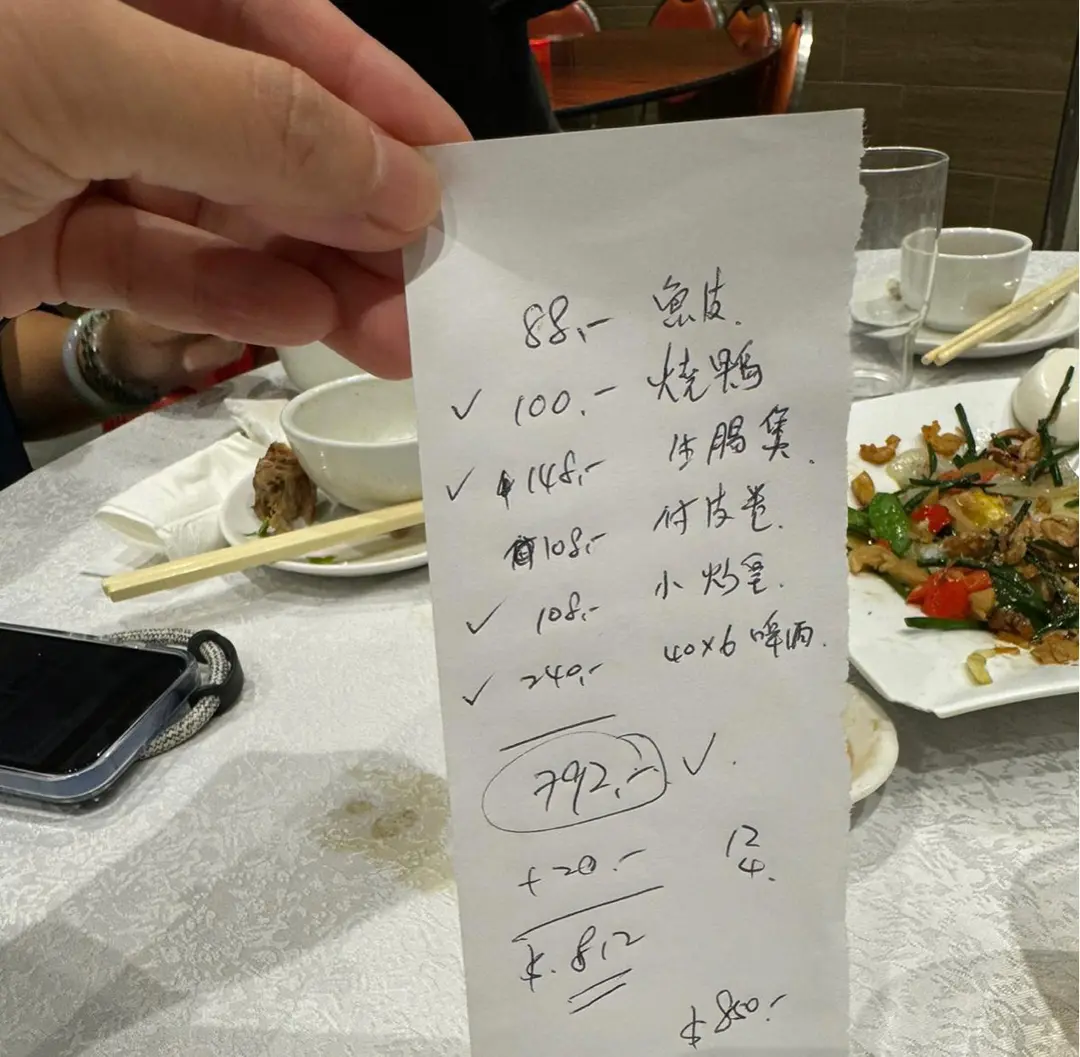 88.- 魚皮.
✓ 100.- 烧鴨
✓ $148.- 生腸煲.
108.- 付皮卷.
✓ 108.- 小炒皇.
✓ 240.- 40×6 啤酒.
792.- ✓.
+20.-
12
4.
$.812
$850.-